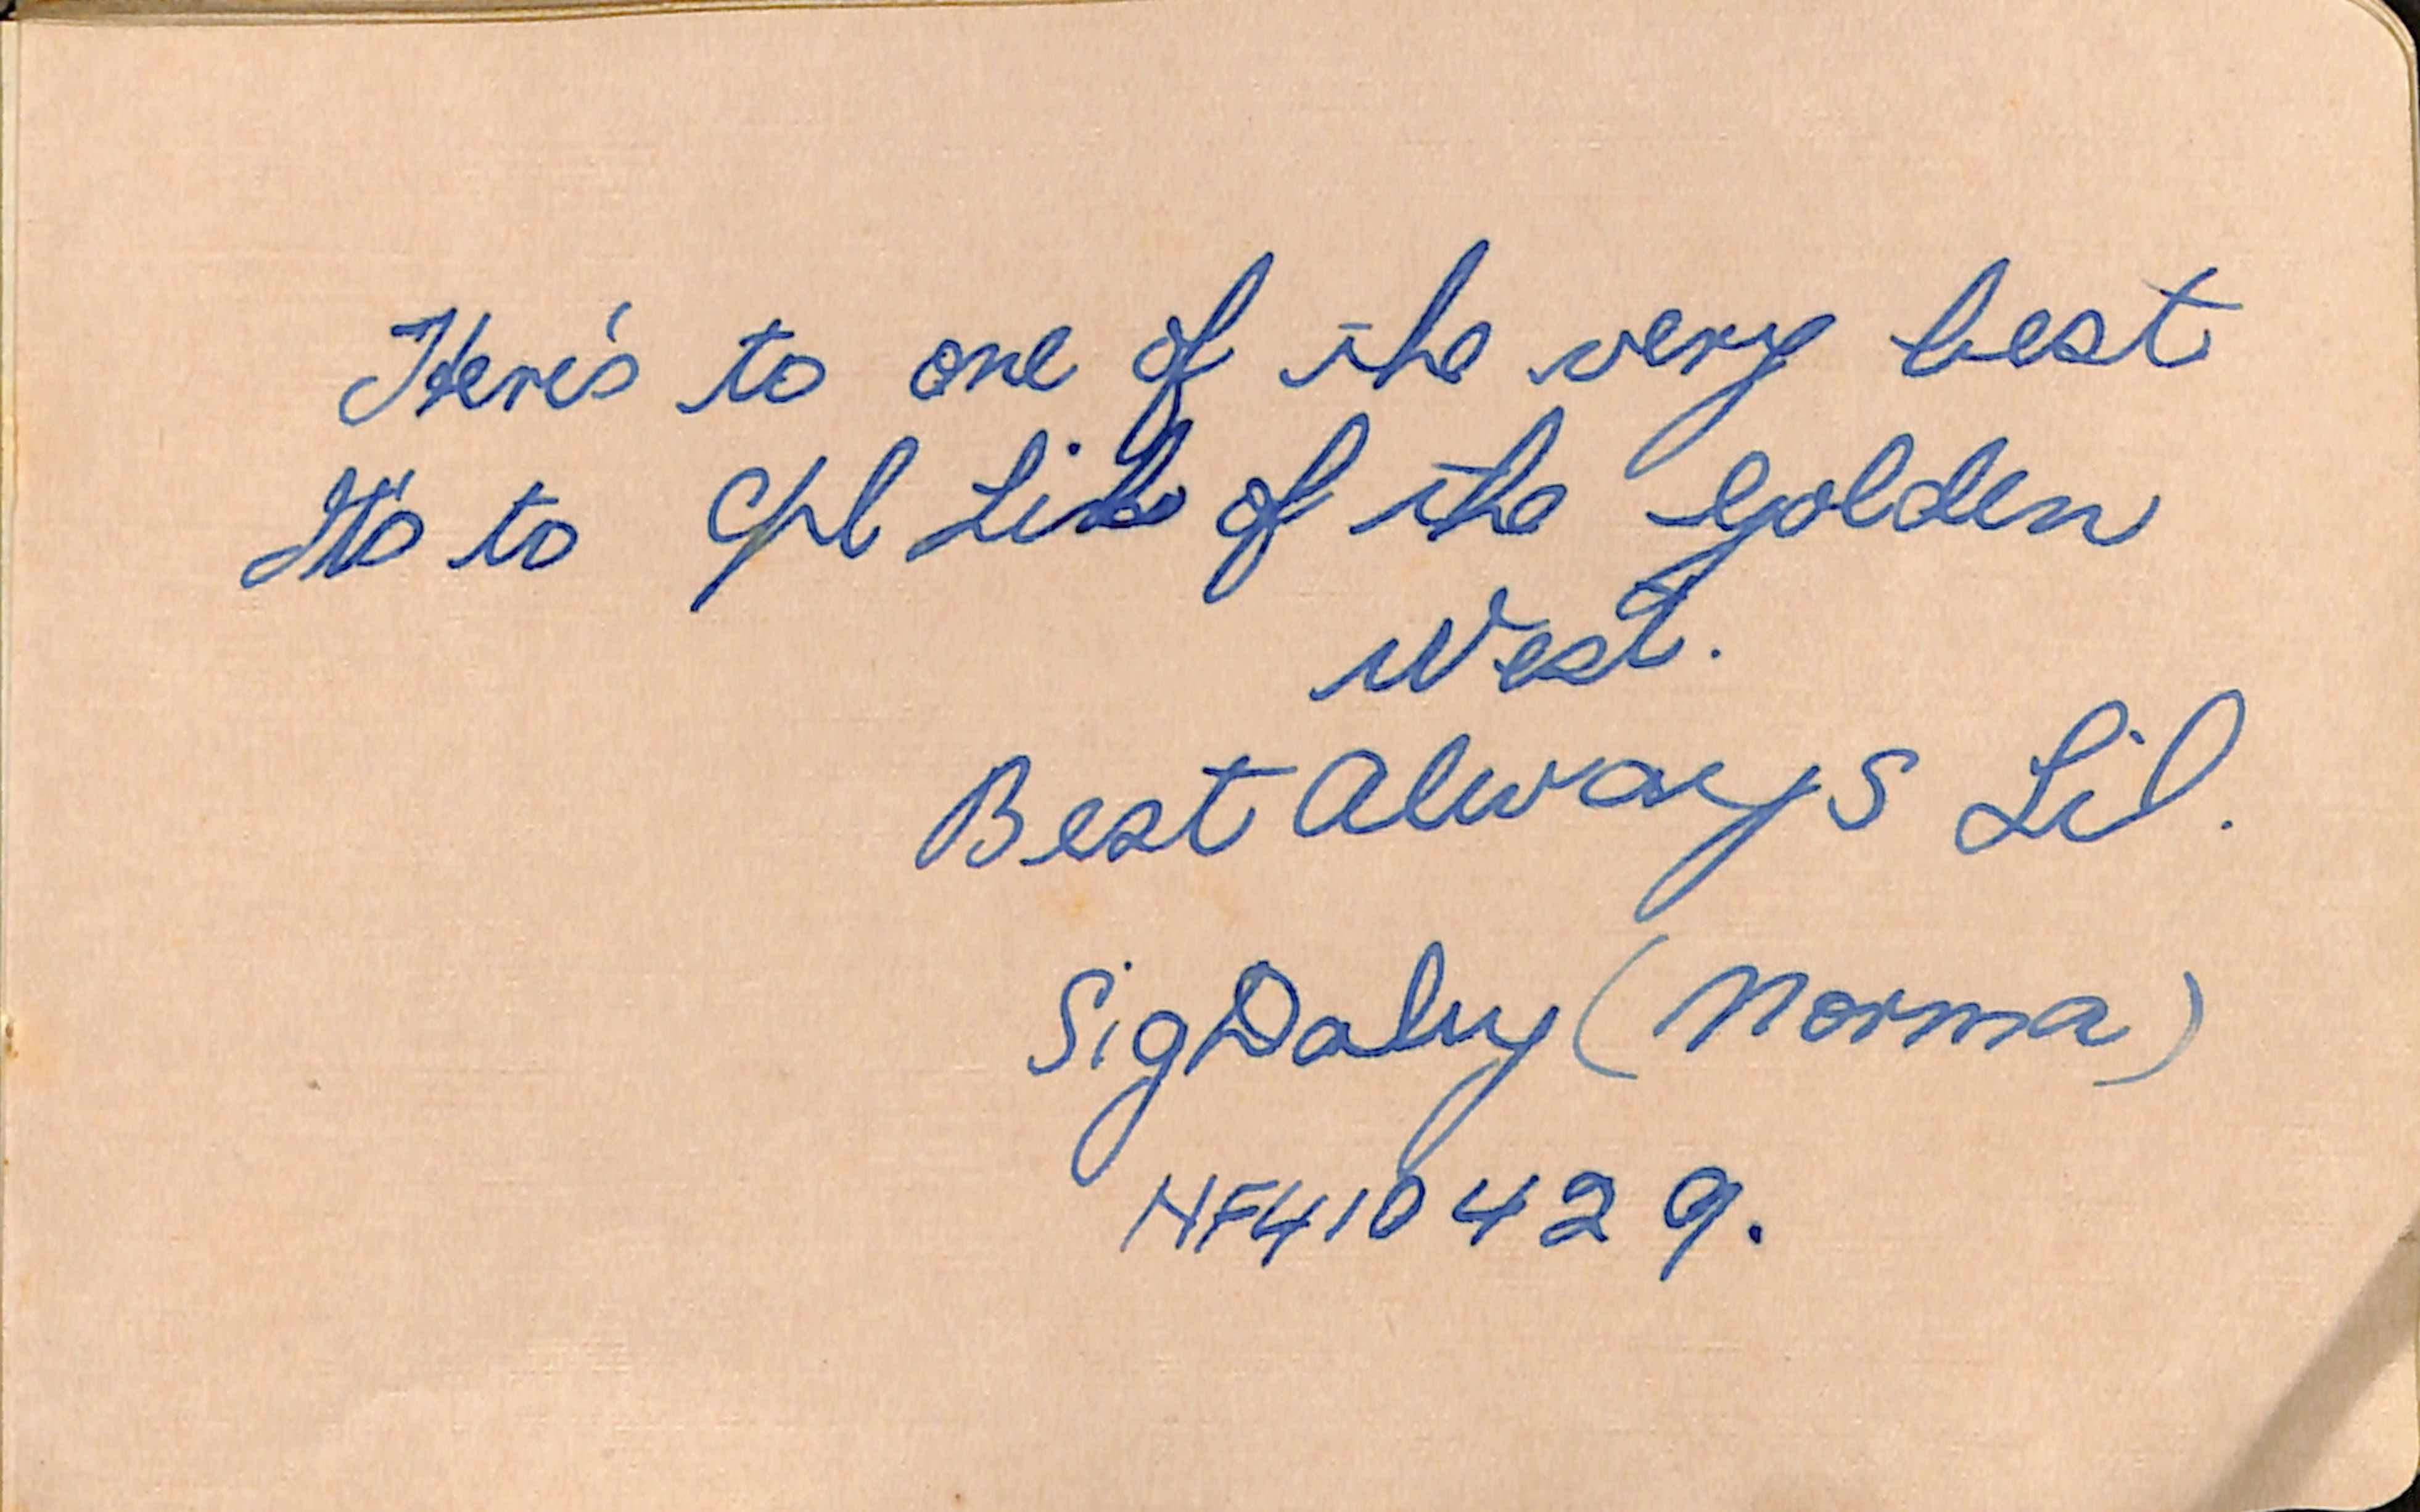 Here's to one of the very best
It's to Cpl Lil of the Golden
West.
Best Always Lil.
Sig Daley (Norma)
NF410429.